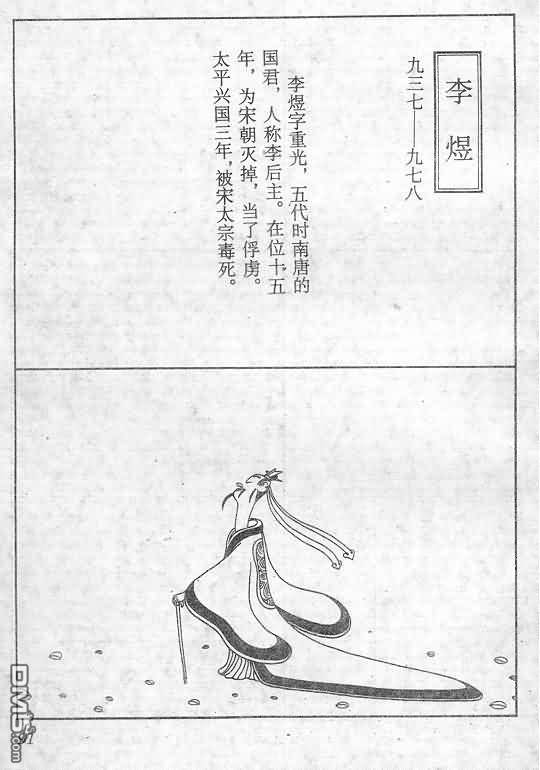 李煜
九三七——九七八
李煜字重光，五代时南唐的
国君，人称李后主。在位十五
年，为宋朝灭掉，当了俘虏。
太平兴国三年，被宋太宗毒死。
DM5
.com